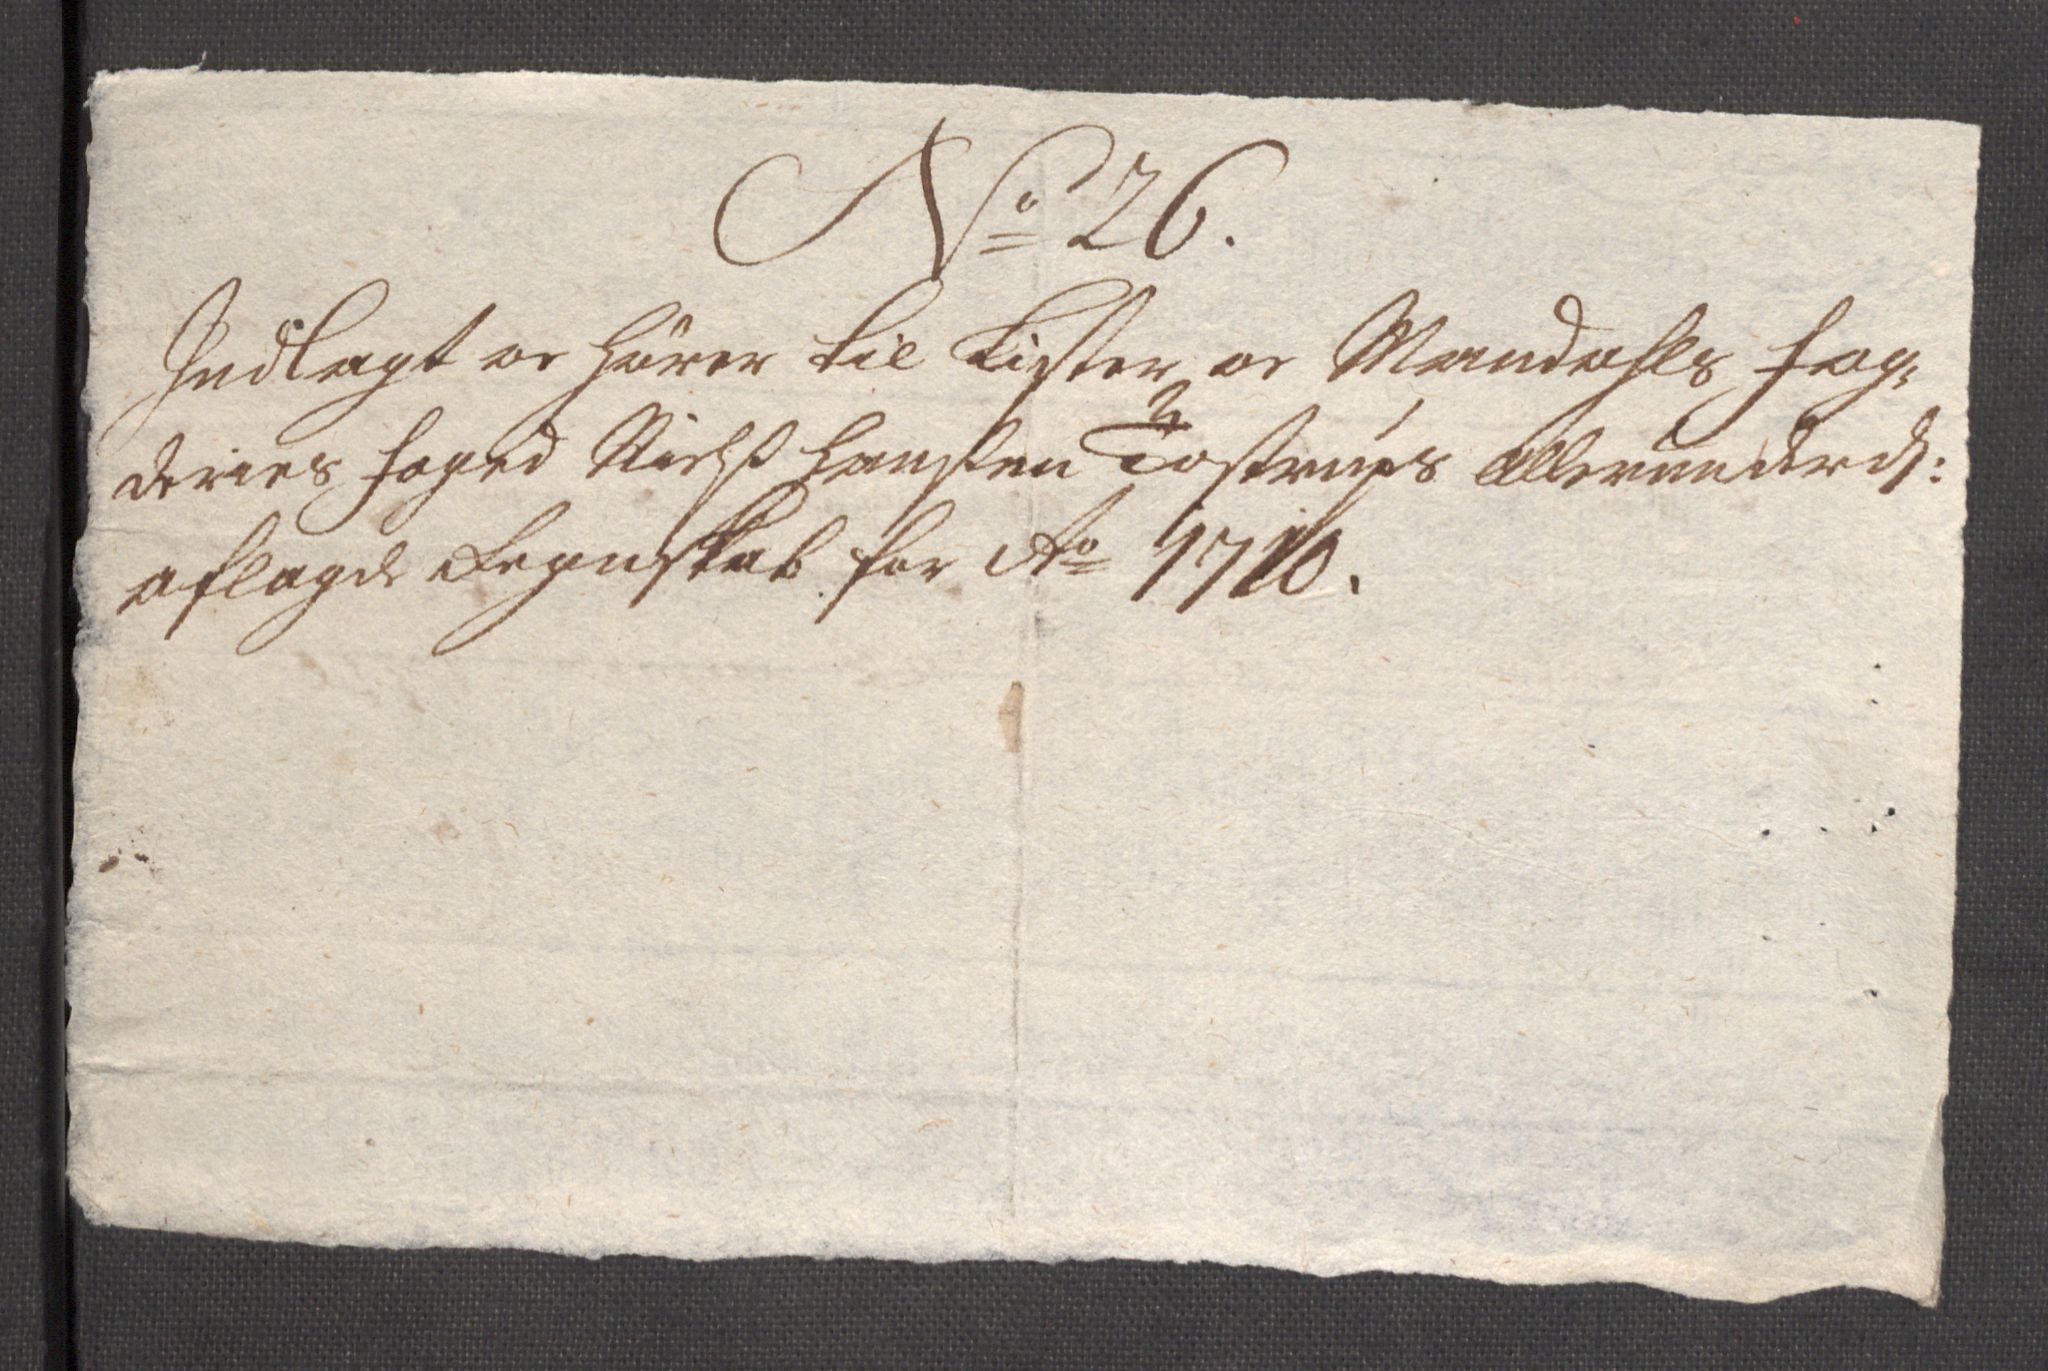 No 26.
Indlagt oc hörer til Lister oc Mandahls fog-
deries foged Nielß Hanßen Tostrups allerunderd:
aflagde Regnskab for Ao 1710.